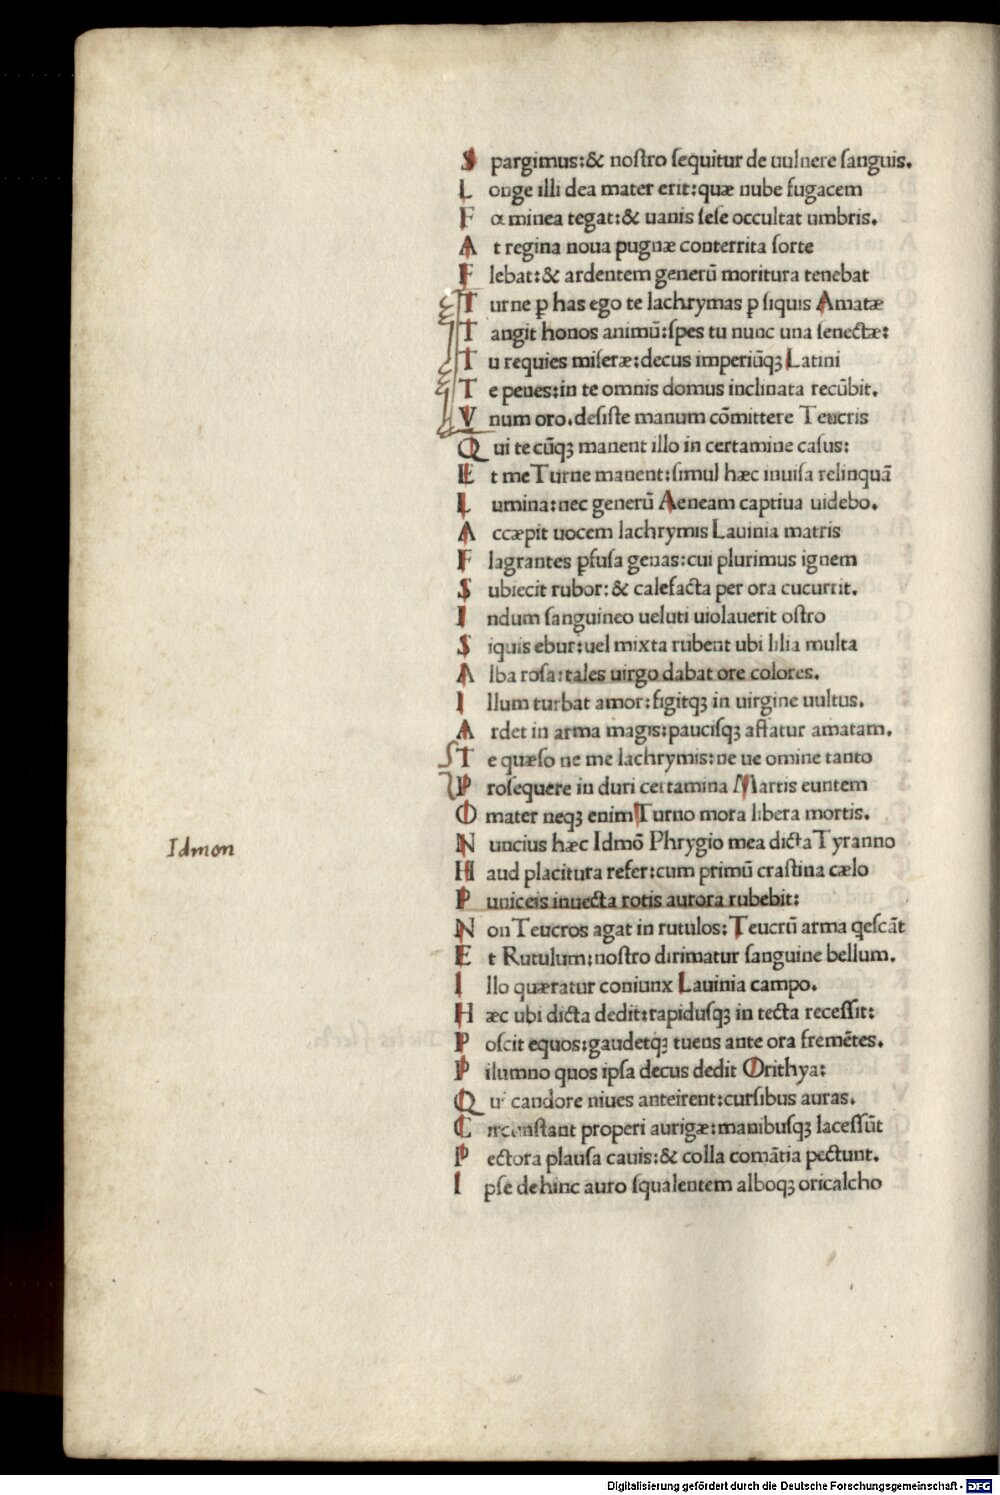 S pargimus:& nostro sequitur de uulnere sanguis.
L onge illi dea mater erit:quæ nube fugacem
F œminea tegat:& uanis sese occultat umbris.
A t regina noua pugnæ conterrita sorte
F lebat:& ardentem generū moritura tenebat
T urne ꝑ has ego te lachrymas ꝑ siquis Amatæ
T angit honos animū:spes tu nunc una senectæ:
T u requies miseræ:decus imperiūqꝫ Latini
T e penes:in te omnis domus inclinata recūbit.
V num oro.desiste manum cōmittere Teucris
Q ui te cūqꝫ manent illo in certamine casus:
E t me Turne manent:simul hæc inuisa relinquā
L umina:nec generū Aeneam captiua uidebo.
A ccæpit uocem lachrymis Lauinia matris
F lagrantes ꝑfusa genas:cui plurimus ignem
S ubiecit rubor:& calefacta per ora cucurrit.
I ndum sanguineo ueluti uiolauerit ostro
S iquis ebur:uel mixta rubent ubi lilia multa
A lba rosa:tales uirgo dabat ore colores.
I llum turbat amor:figitqꝫ in uirgine uultus.
A rdet in arma magis:paucisqꝫ affatur amatam.
T e quæso ne me lachrymis:ne ue omine tanto
P rosequere in duri certamina Martis euntem
O mater neqꝫ enim Turno mora libera mortis.
N uncius hæc Idmō Phrygio mea dicta Tyranno
Idmon
H aud placitura refer:cum primū crastina cælo
P uniceis inuecta rotis aurora rubebit:
N on Teucros agat in rutulos:Teucrū arma qescāt
E t Rutulum:nostro dirimatur sanguine bellum.
I llo quæratur coniunx Lauinia campo.
H æc ubi dicta dedit:rapidusqꝫ in tecta recessit:
P oscit equos:gaudetqꝫ tuens ante ora fremētes.
P ilumno quos ipsa decus dedit Orithya:
Q ui candore niues anteirent:cursibus auras.
C ircunstant properi aurigæ:manibusqꝫ lacessūt
P ectora plausa cauis:& colla comātia pectunt.
I pse dehinc auro squalentem alboqꝫ oricalcho
Digitalisierung gefördert durch die Deutsche Forschungsgemeinschaft - DFG